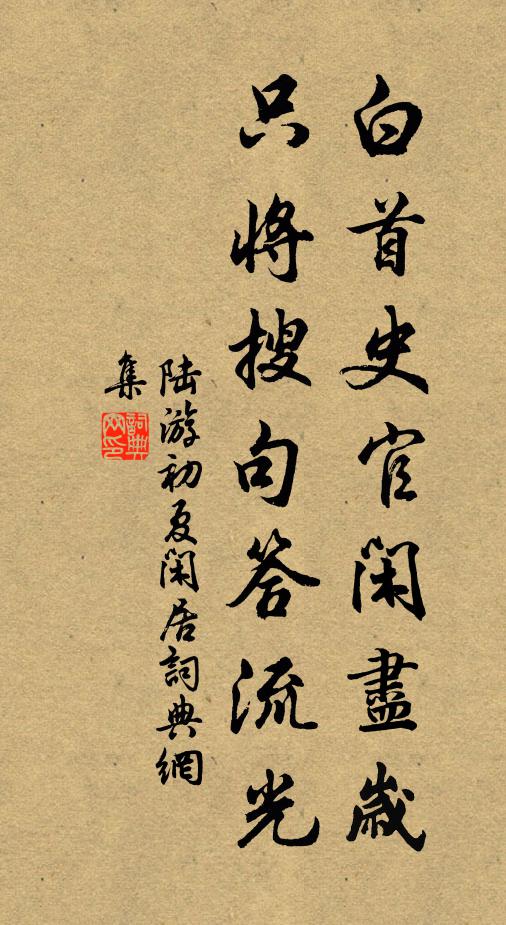 白首史官閑盡歲
只將搜句答流光
陆游初夏閑居詞典網
集
詞典
网印